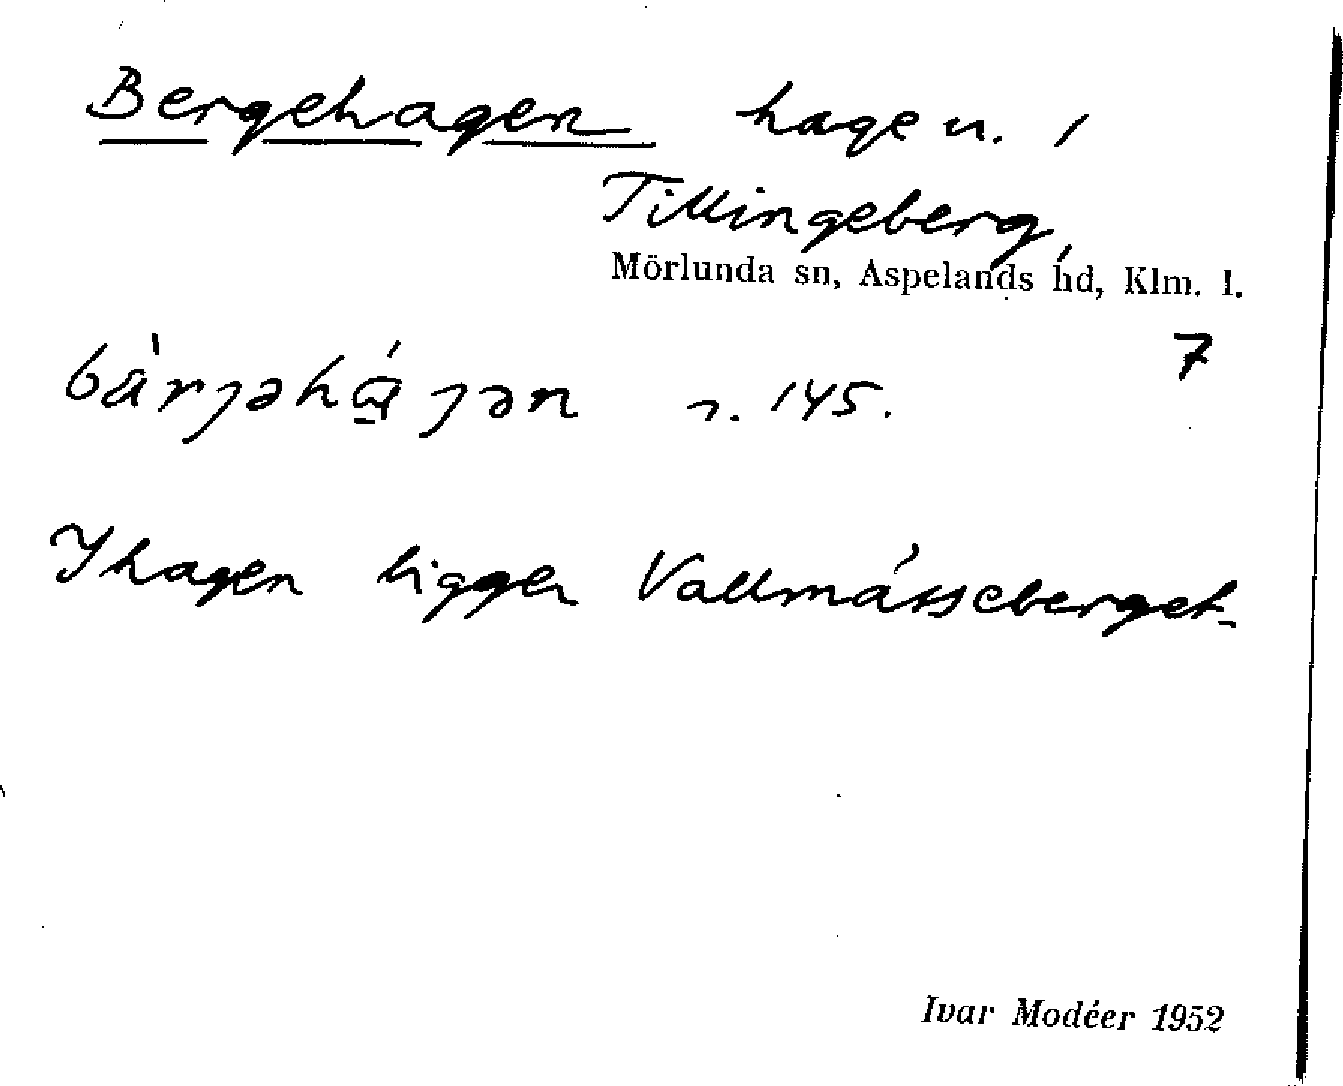 Bergehagen hage u. /
Tillingeberg,
Mörlunda sn, Aspelands hd, Klm. l.
7
n. 145.
I hagen ligger Vallmásseberget.
Ivar Modéer 1952